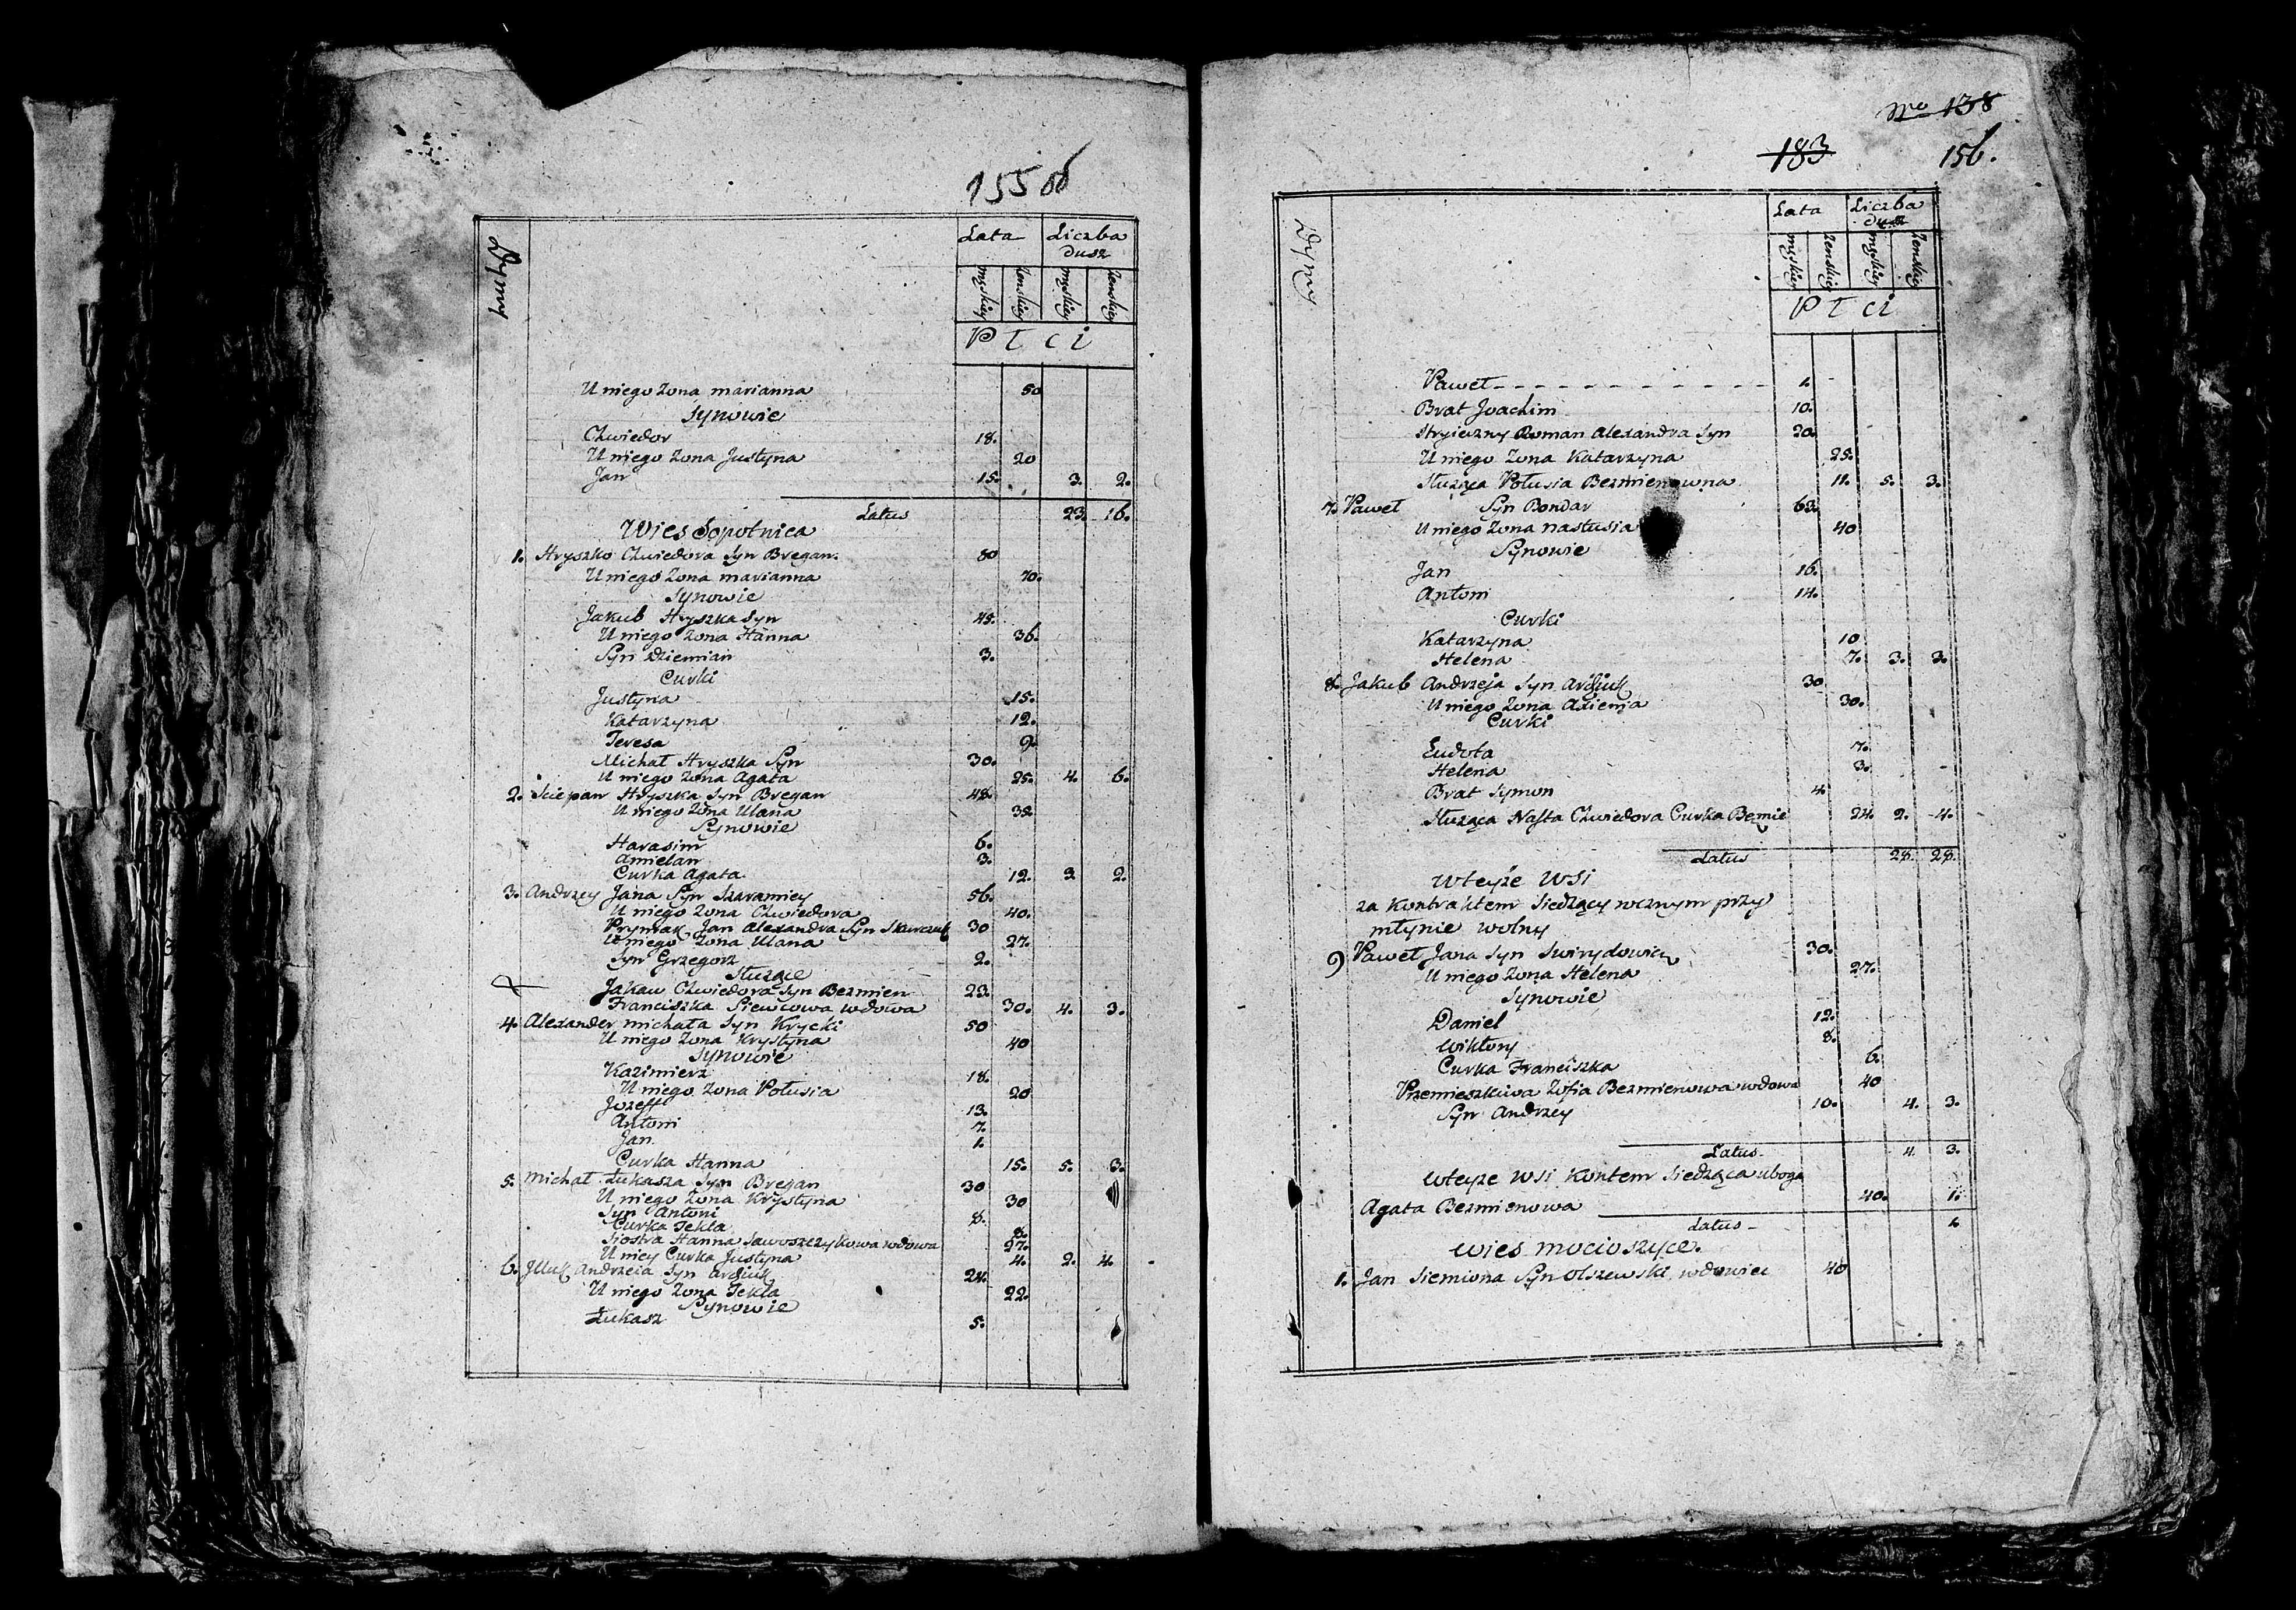 155 об
Dymy
Lata Liczba dusz
męskiey żenskiey męskiey żenskiey
Płci
U niego Zona marianna 50
Synowie
Chwiedor 18.
U niego Zona Justyna 20
Jan 15. 3. 2.
Latus 23. 16.
Wies Sopotnica
1. Hryszko Chwiedora Syn Bregan. 80
U niego Zona marianna 70.
Synowie
Jakub Hryszka Syn 45.
U niego Zona Hanna 36.
Syn Dziemian 3.
Curki
Justyna 15.
Katarzyna 12.
Teresa 9.
Michał Hryszka Syn 30.
U niego Zona Agata 25. 4. 6.
2. Sciepan Hryszka Syn Bregan 48.
U niego Zona Ulana 38.
Synowie
Harasim 6.
Amielan 3.
Curka Agata 12. 3. 2.
3. Andrzey Jana Syn Szaramiey 56.
U niego Zona Chwiedora 40.
Prymak Jan Alexandra Syn Skurczuk 30
U niego Zona Ulana 27.
Syn Grzegorz 2.
Służące
Jakaw Chwiedora Syn Bezmien 23.
Franciszka Siewcowa wdowa 30. 4. 3.
4. Alexander michała Syn Krycki 50
U niego Zona Krystyna 40
Synowie
Kazimierz 18.
U niego Zona Połusia 20
Jozeff 13.
Antoni 7.
Jan 1.
Curka Hanna 15. 5. 3.
5. michał Łukasza Syn Bregan 30
U niego Zona Krystyna 30
Syn Antoni 8.
Curka Tekla 8.
Siostra Hanna Sawoszczykowa wdowa 27.
U niey Curka Justyna 4. 2. 4.
6. Illuk Andrzeia Syn Ardiuk 24.
U niego Zona Tekla 22.
Synowie
Łukasz 5.
No 138
183
156.
Dymy
Lata Liczba dusz
męskiey żenskiey męskiey żenskiey
Płci
Paweł 1.
Brat Joachim 10.
Stryieczny Roman Alexandra Syn 30.
U niego Zona Katarzyna 25.
Służąca Połusia Bezmienowna 11. 5. 3.
7. Paweł Syn Bondar 63.
U niego Zona nastusia 40
Synowie
Jan 16.
Antoni 14.
Curki
Katarzyna 10
Helena 7. 3. 3.
8. Jakub Andrzeja Syn Ardiuk 30
U niego Zona Axienia 30.
Curki
Eudota 7.
Helena 3.
Brat Symon 4
Służąca Nasta Chwiedora Curka Bezmie 24. 2. 4.
Latus 28. 28.
Wteyże WSi
za kontraktem Siedzący rocznym przy
młynie wolny
9 Paweł Jana Syn Swirydowicz 30.
U niego Zona Helena 27.
Synowie
Daniel 12.
Wiktory 8.
Curka Franciszka 6.
Przemieszkiwa Zofia Bezmienowa wdowa 40
Syn Andrzey 10. 4. 3.
Latus 4. 3.
Wteyże WSi Kontem Siedząca uboga
Agata Bezmienowa 40. 1.
Latus 1.
Wies mocioszyce.
1. Jan Siemiona Syn Olszewski wdowiec 40